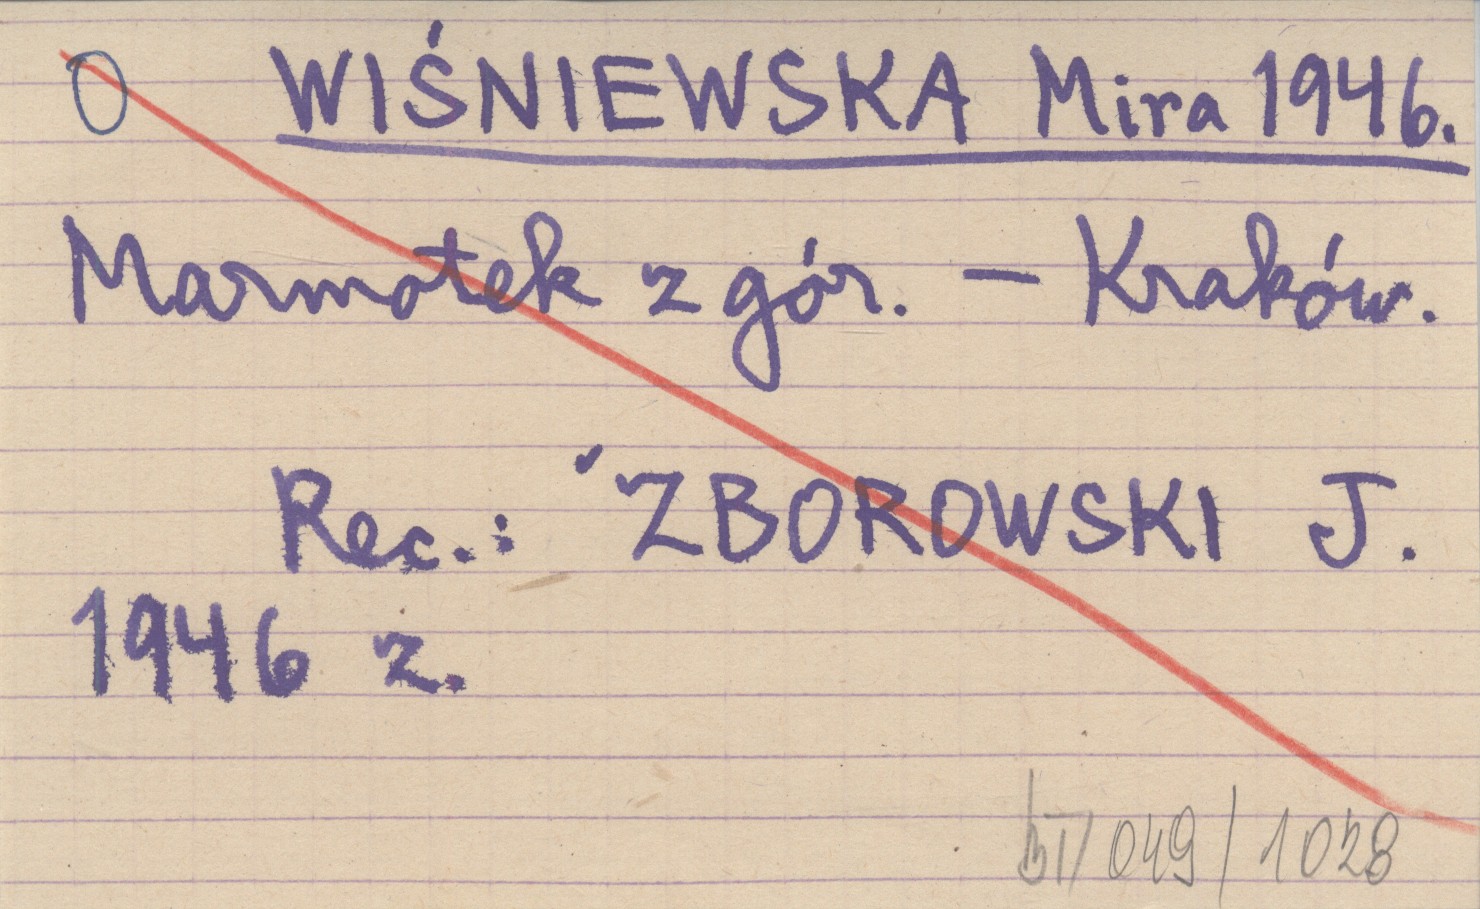 O WIŚNIEWSKA Mira 1946.
Marmotek z gór. – Kraków.
Rec.: ZBOROWSKI J.
1946 z.
049/1028